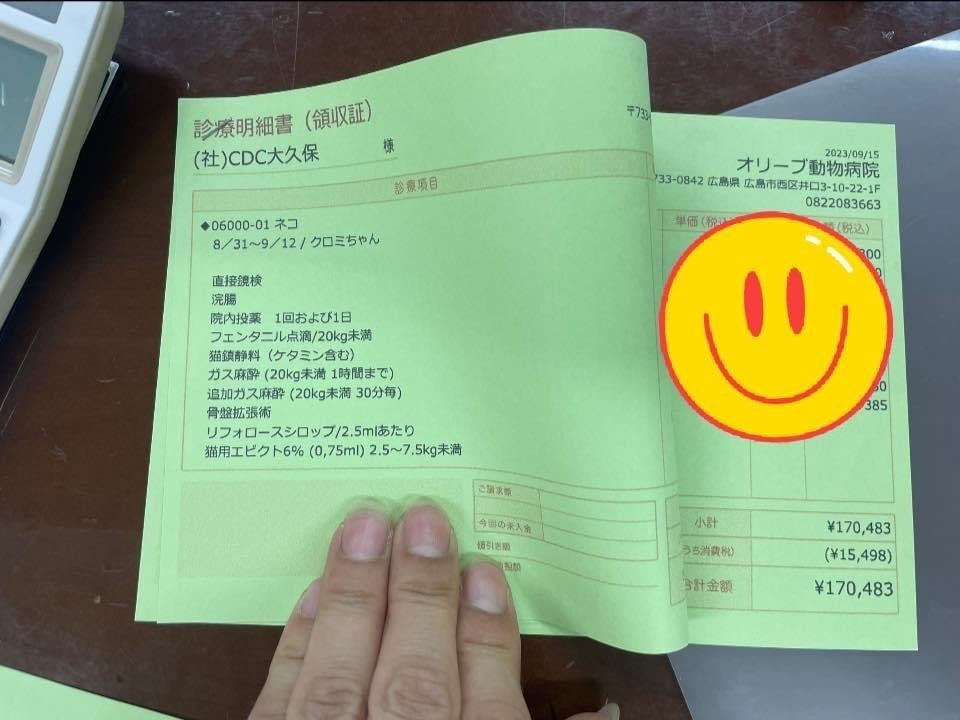 診療明細書(領収証)
(社)CDC大久保 様
診療項目
◆06000-01 ネコ
8/31～9/12 / クロミちゃん
直接鏡検
浣腸
院内投薬 1回および1日
フェンタニル点滴/20kg未満
猫鎮静料(ケタミン含む)
ガス麻酔 (20kg未満 1時間まで)
追加ガス麻酔 (20kg未満 30分毎)
骨盤拡張術
リフォロースシロップ/2.5mlあたり
猫用エビクト6% (0,75ml) 2.5～7.5kg未満
ご請求額
今回の未入金
値引き額
〒733-
2023/09/15
オリーブ動物病院
733-0842 広島県 広島市西区井口3-10-22-1F
0822083663
単価(税込
(税込)
300
0
50
385
小計 ¥170,483
うち消費税) (¥15,498)
合計金額 ¥170,483